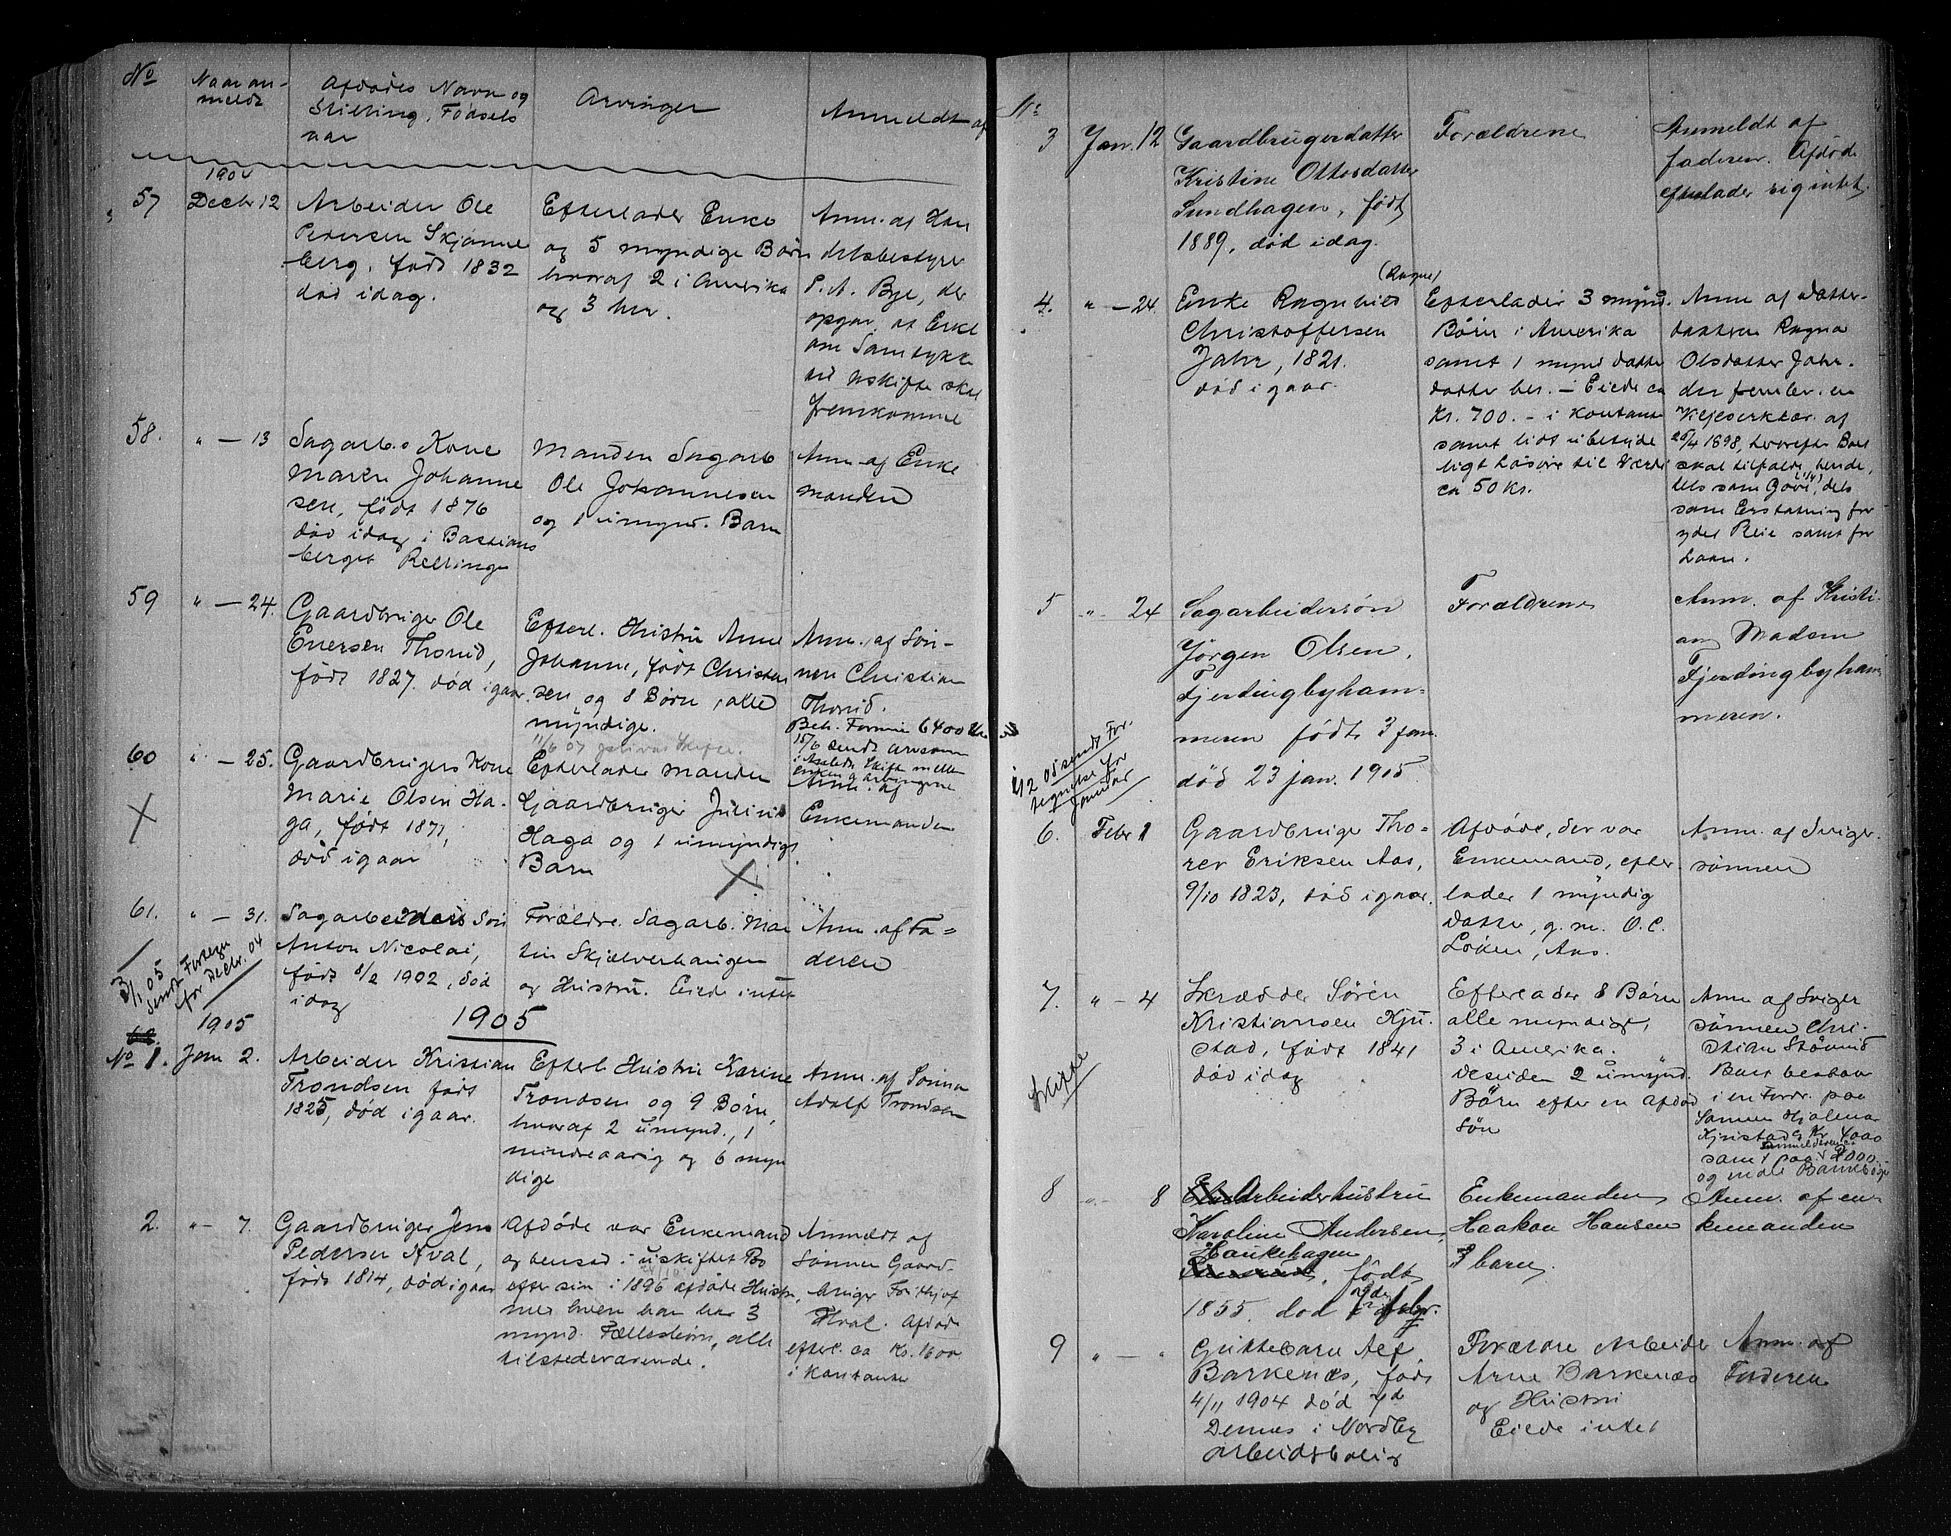 No
Naar an-
meldt
Afdødes Navn og
Stilling, Fødsels
aar
Arvinger
Anmeldt af
57
1904
Decbr 12
Arbeider Ole
Pedersen Skjønne
berg, født 1832
død idag.
Efterlader Enke
og 5 myndige Børn
hvoraf 2 i Amerika
og 3 her.
Anm. af Han
delsbestyrer
P. A. Bye, der
opgav, at Enke
ns Samtykke
til uskifte skal
fremkomme
58.
" — 13
Sagarb.s Kone
Maren Johanne
sen, født 1876
død idag i Bastians
berget Rellinge
Manden Sagarb
Ole Johannesen
og 1 umynd. Barn
Anm. af Enke
manden
59
" — 24.
Gaardbruger Ole
Enersen Thorud,
født 1827. død igaar
Efterl. Hustru Anne
Johanne, født Christian
sen og 8 Børn, alle
myndige.
Anm. af Søn-
nen Christian
Thorud.
Beh. Formue 6400 Kr
60
" — 25.
Gaardbrugers Kone
Marie Olsen Ha-
ga, født 1871,
død igaar
Efterlader Manden
Gaardbruger Julius
Haga og 1 umyndigt
Barn
Anm. af
Enkemanden
61.
" — 31.
Sagarbeiders Søn
Anton Nicolai,
født 8/2 1902, død
idag
Forældre. Sagarb. Mar
tin Skjælverhaugen
og Hustru. Eiede intet
Anm. af Fa-
deren
3/1 05
sendt Fortegn
for Decbr. 04
1905
1905
No 1.
Jan 2.
Arbeider Kristian
Trondsen født
1825, død igaar.
Efterl Hustru Karine
Trondsen og 9 Børn,
hvoraf 2 umynd., 1
mindreaarig og 6 myn
dige
Anm. af Sønnen
Adolf Trondsen
2.
" — 7.
Gaardbruger Jens
Pedersen Hval,
født 1814, død igaar
Afdøde var Enkemand
og hensad i uskiftet Bo
efter sin i 1896 afdøde Hustru,
med hvem han har 3
mynd. Fællesbørn, alle
tilstedeværende.
Anmeldt af
Sønnen Gaard-
bruger Fridtjof
Hval. Afdøde
efterl. ca Kr. 1600
i Kontanter
No
3
Jan. 12
Gaardbrugerdatter
Kristine Ottosdatter
Sundhagen, født
1889, død idag.
Forældrene
Anmeldt af
faderen. Afdøde
efterlader sig intet.
4.
" — 24.
Enke Ragnhild (Ragne)
Christoffersen
Jahr, 1821.
død igaar.
Efterlader 3 mynd.
Børn i Amerika
samt 1 mynd datter
datter her. — Eiede ca
Kr. 700. – i Kontanter
samt lidt ubetyde
ligt Løsøre til Værdi
ca 50 Kr.
Anm af datter-
datteren Ragna
Olsdatter Jahr.
der fremlev. en
Viljeserklær. af
26/4 1898, hvorefter Boet
skal tilfalde hende,
dels som Gave (1/4), dels
som Erstatning for
ydet Pleie samt for
Laan.
5
" 24
Sagarbeidersøn
Jørgen Olsen,
Fjerdingbyham-
meren født 3 jan.
død 23 jan. 1905.
Forældrene
Anm. af Kristi-
an Madsen
Fjerdingbyham
meren.
1/2 05 sendt For-
tegnelse for
Januar
6.
Febr 1
Gaardbruger Tho-
rer Eriksen Aas,
9/10 1823, død igaar.
Afdøde, der var
Enkemand, efter
lader 1 myndig
Datter, g. m. O. C.
Løken, Aas.
Anm. af Sviger-
sønnen
7.
" — 4
Skrædder Søren
Kristiansen Kju-
stad, født 1841
død idag
Skifte
Efterlader 8 Børn
alle myndige,
3 i Amerika.
Desuden 2 umynd.
Børn efter en afdød
Søn
Anm af Sviger
sønnen Chri-
stian Stømid
Boet bestaar
i en Fordr. paa
Sønnen Hjalmar
Kjustad Kr 4000
samt paa anmelderen 2000
8
" 8
Arbeiderhustru
Karoline Andersen,
Haukehagen
født
1855. død
Enkemanden
Haakon Hansen
3 barn.
Anm. af en-
kemanden
9
" — "
Guttebarn Alf
Barkenæs, født
4/11 1904 død 7d
Dennes i Nordby
arbeidsbolig
Forældre Arbeider
Arne Barkenæs
og Hustru
Eiede intet
Anm. af
Faderen